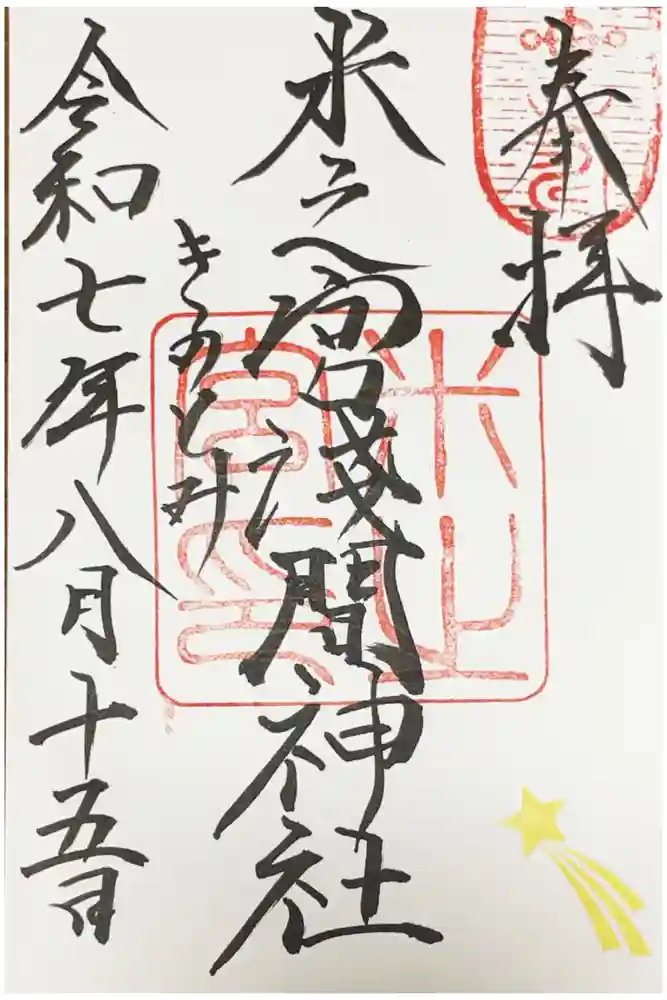 奉拝
米之宮浅間神社
米之宮印
きのとみ
令和七年八月十五日